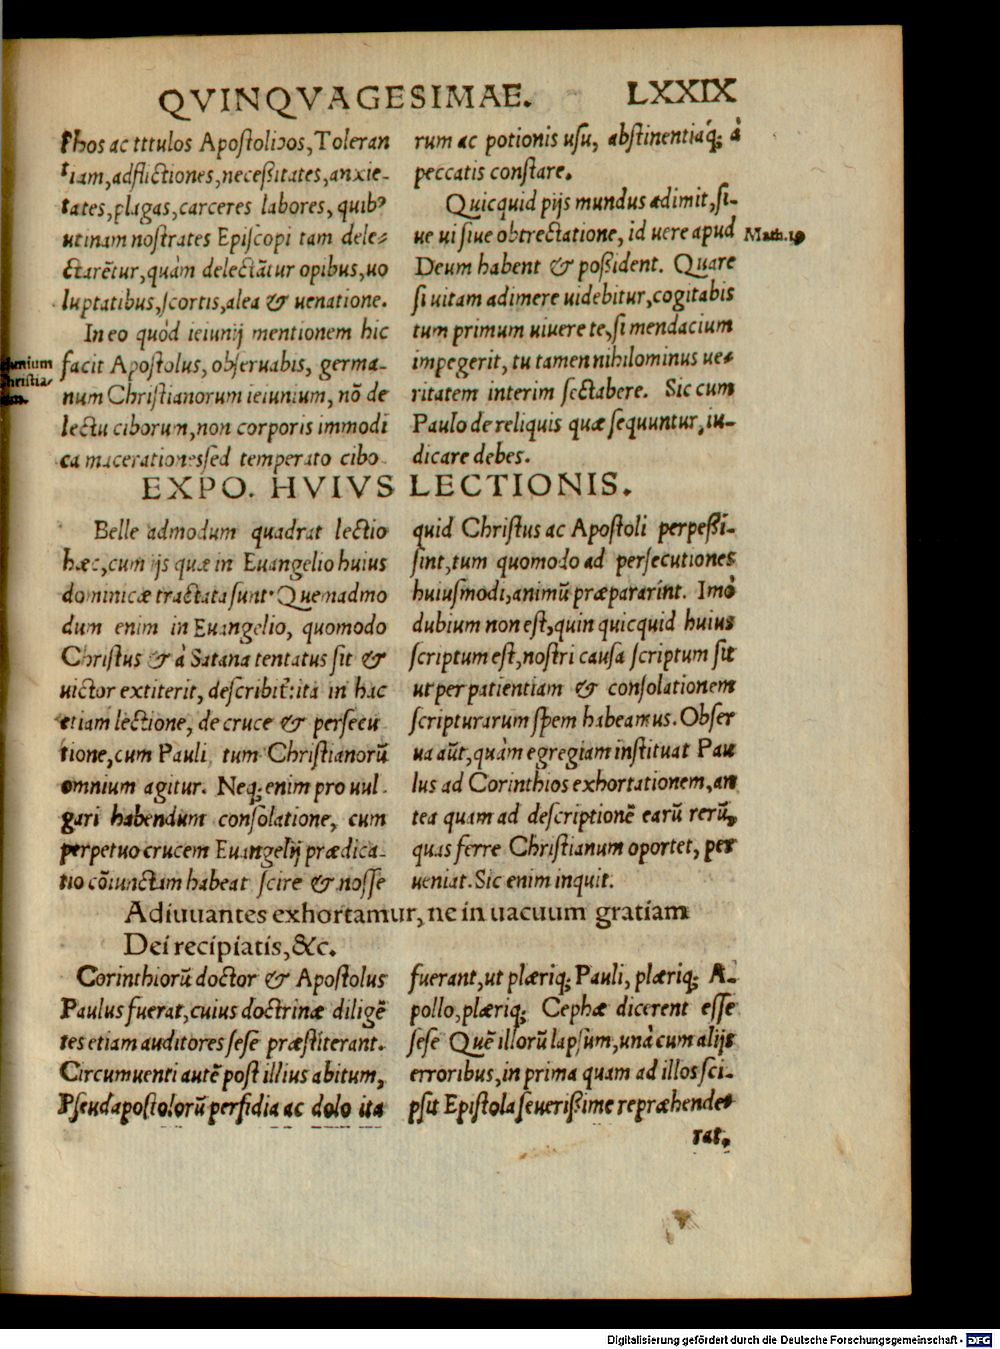 QVINQVAGESIMAE. LXXIX
phos ac tttulos Apostolicos, Toleran
tiam, adflictiones, neceßitates, anxie-
tates, plagas, carceres labores, quibꝰ
utinam nostrates Episcopi tam dele-
ctarētur, quàm delectātur opibus, uo
luptatibus, scortis, alea & uenatione.
In eo quòd ieiunij mentionem hic
facit Apostolus, obseruabis, germa-
num Christianorum ieiunium, nō de
lectu ciborum, non corporis immodi
ca macerationessed temperato cibo
rum ac potionis usu, abstinentiáq; à
peccatis constare.
Quicquid pijs mundus adimit, si-
ue ui siue obtrectatione, id uere apud
Deum habent & poßident. Quare
si uitam adimere uidebitur, cogitabis
tum primum uiuere te, si mendacium
impegerit, tu tamen nihilominus ue-
ritatem interim sectabere. Sic cum
Paulo de reliquis quæ sequuntur, iu-
dicare debes.
Math. 19
iunium
Christia-
EXPO. HVIVS LECTIONIS.
Belle admodum quadrat lectio
hæc, cum ijs quæ in Euangelio huius
dominicæ tractata sunt. Quemadmo
dum enim in Euangelio, quomodo
Christus & à Satana tentatus sit &
uictor extiterit, describit̃: ita in hac
etiam lectione, de cruce & persecu
tione, cum Pauli, tum Christianorū
omnium agitur. Neq; enim pro uul
gari habendum consolatione, cum
perpetuo crucem Euangelij prædica-
tio cōiunctam habeat scire & nosse
quid Christus ac Apostoli perpeßi-
sint, tum quomodo ad persecutiones
huiusmodi, animū præpararint. Imò
dubium non est, quin quicquid huius
scriptum est, nostri causa scriptum sit
ut per patientiam & consolationem
scripturarum spem habeamus. Obser
ua aūt, quàm egregiam instituat Pau
lus ad Corinthios exhortationem, an
tea quam ad descriptionē earū rerū,
quas ferre Christianum oportet, per
ueniat. Sic enim inquit.
Adiuuantes exhortamur, ne in uacuum gratiam
Dei recipiatis, &c.
Corinthiorū doctor & Apostolus
Paulus fuerat, cuius doctrinæ diligē
tes etiam auditores sese præstiterant.
Circumuenti autē post illius abitum,
Pseudapostolorū perfidia ac dolo ita
fuerant, ut plæriq; Pauli, plæriq; A-
pollo, plæriq; Cephæ dicerent esse
sese Quē illorū lapsum, unà cum alijs
erroribus, in prima quam ad illos sci-
psit Epistola seuerißime repræhende
rat,
Digitalisierung gefördert durch die Deutsche Forschungsgemeinschaft - DFG